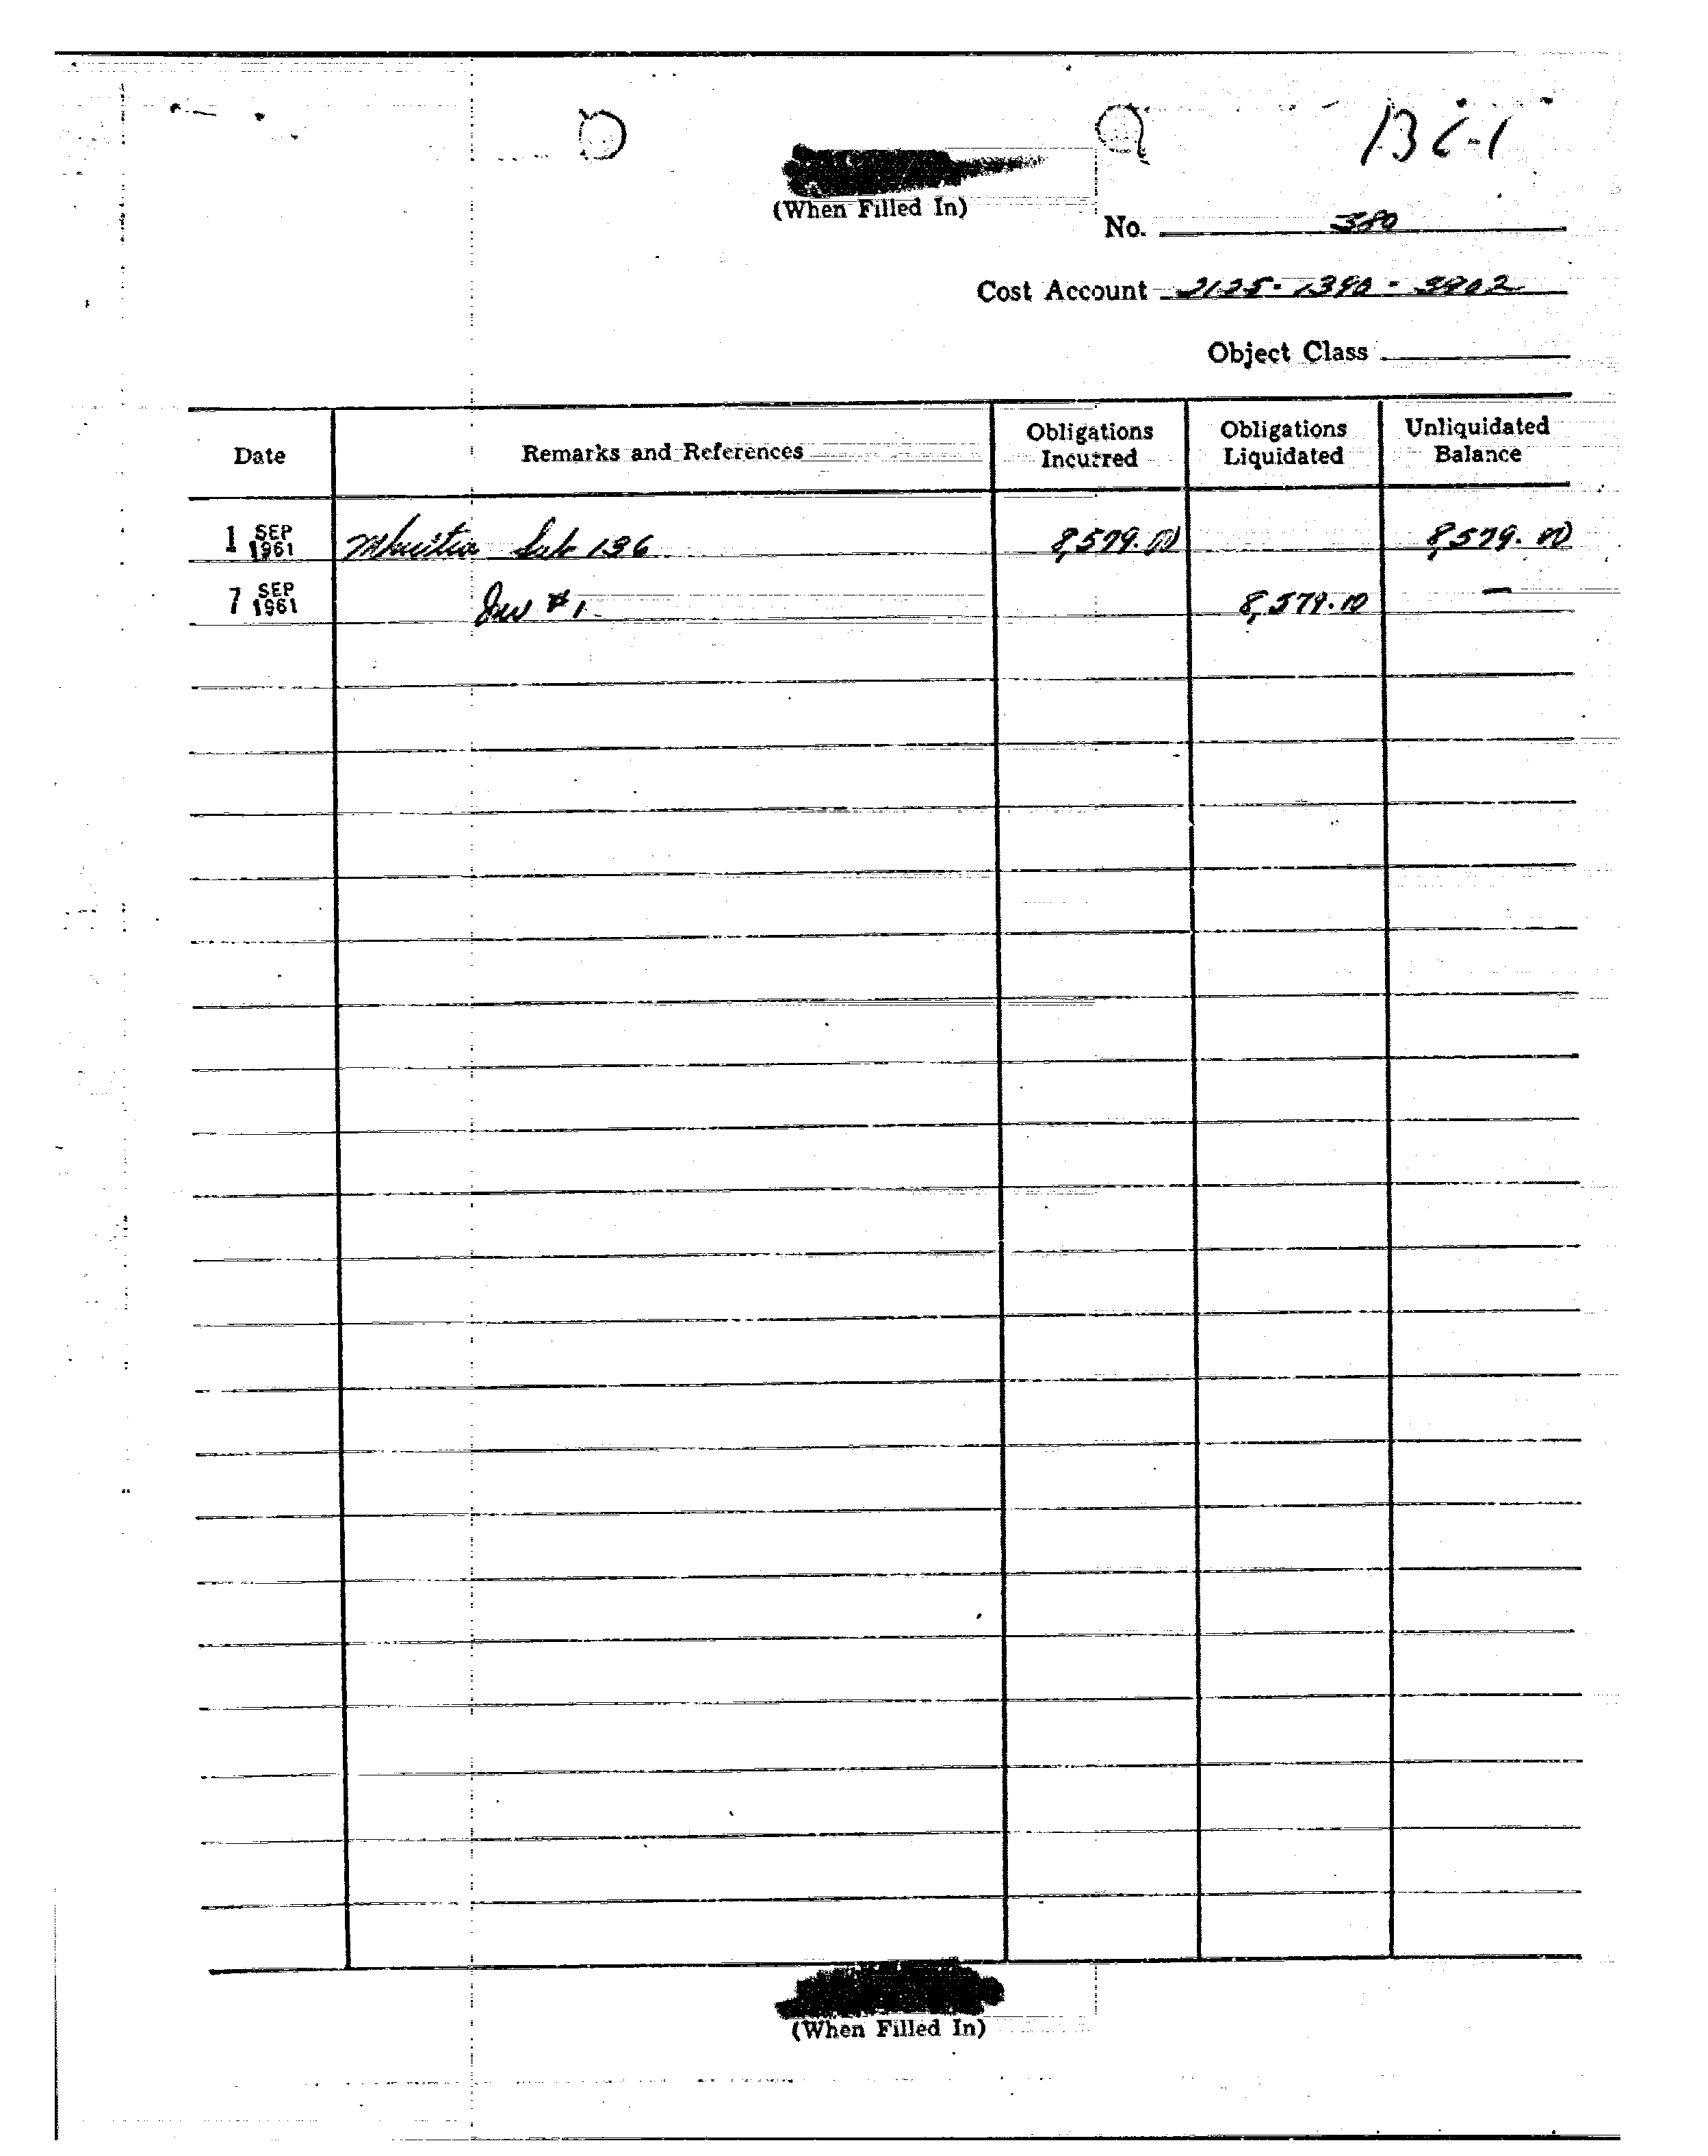 136-1
(When Filled In)
No. 380
Cost Account 2125-1390-3902
Object Class
Date Remarks and References Obligations Incurred Obligations Liquidated Unliquidated Balance
1 SEP 1961 Sub 136 8,579.00 8,579.00
7 SEP 1961 Inv #1 8,579.00 —
(When Filled In)